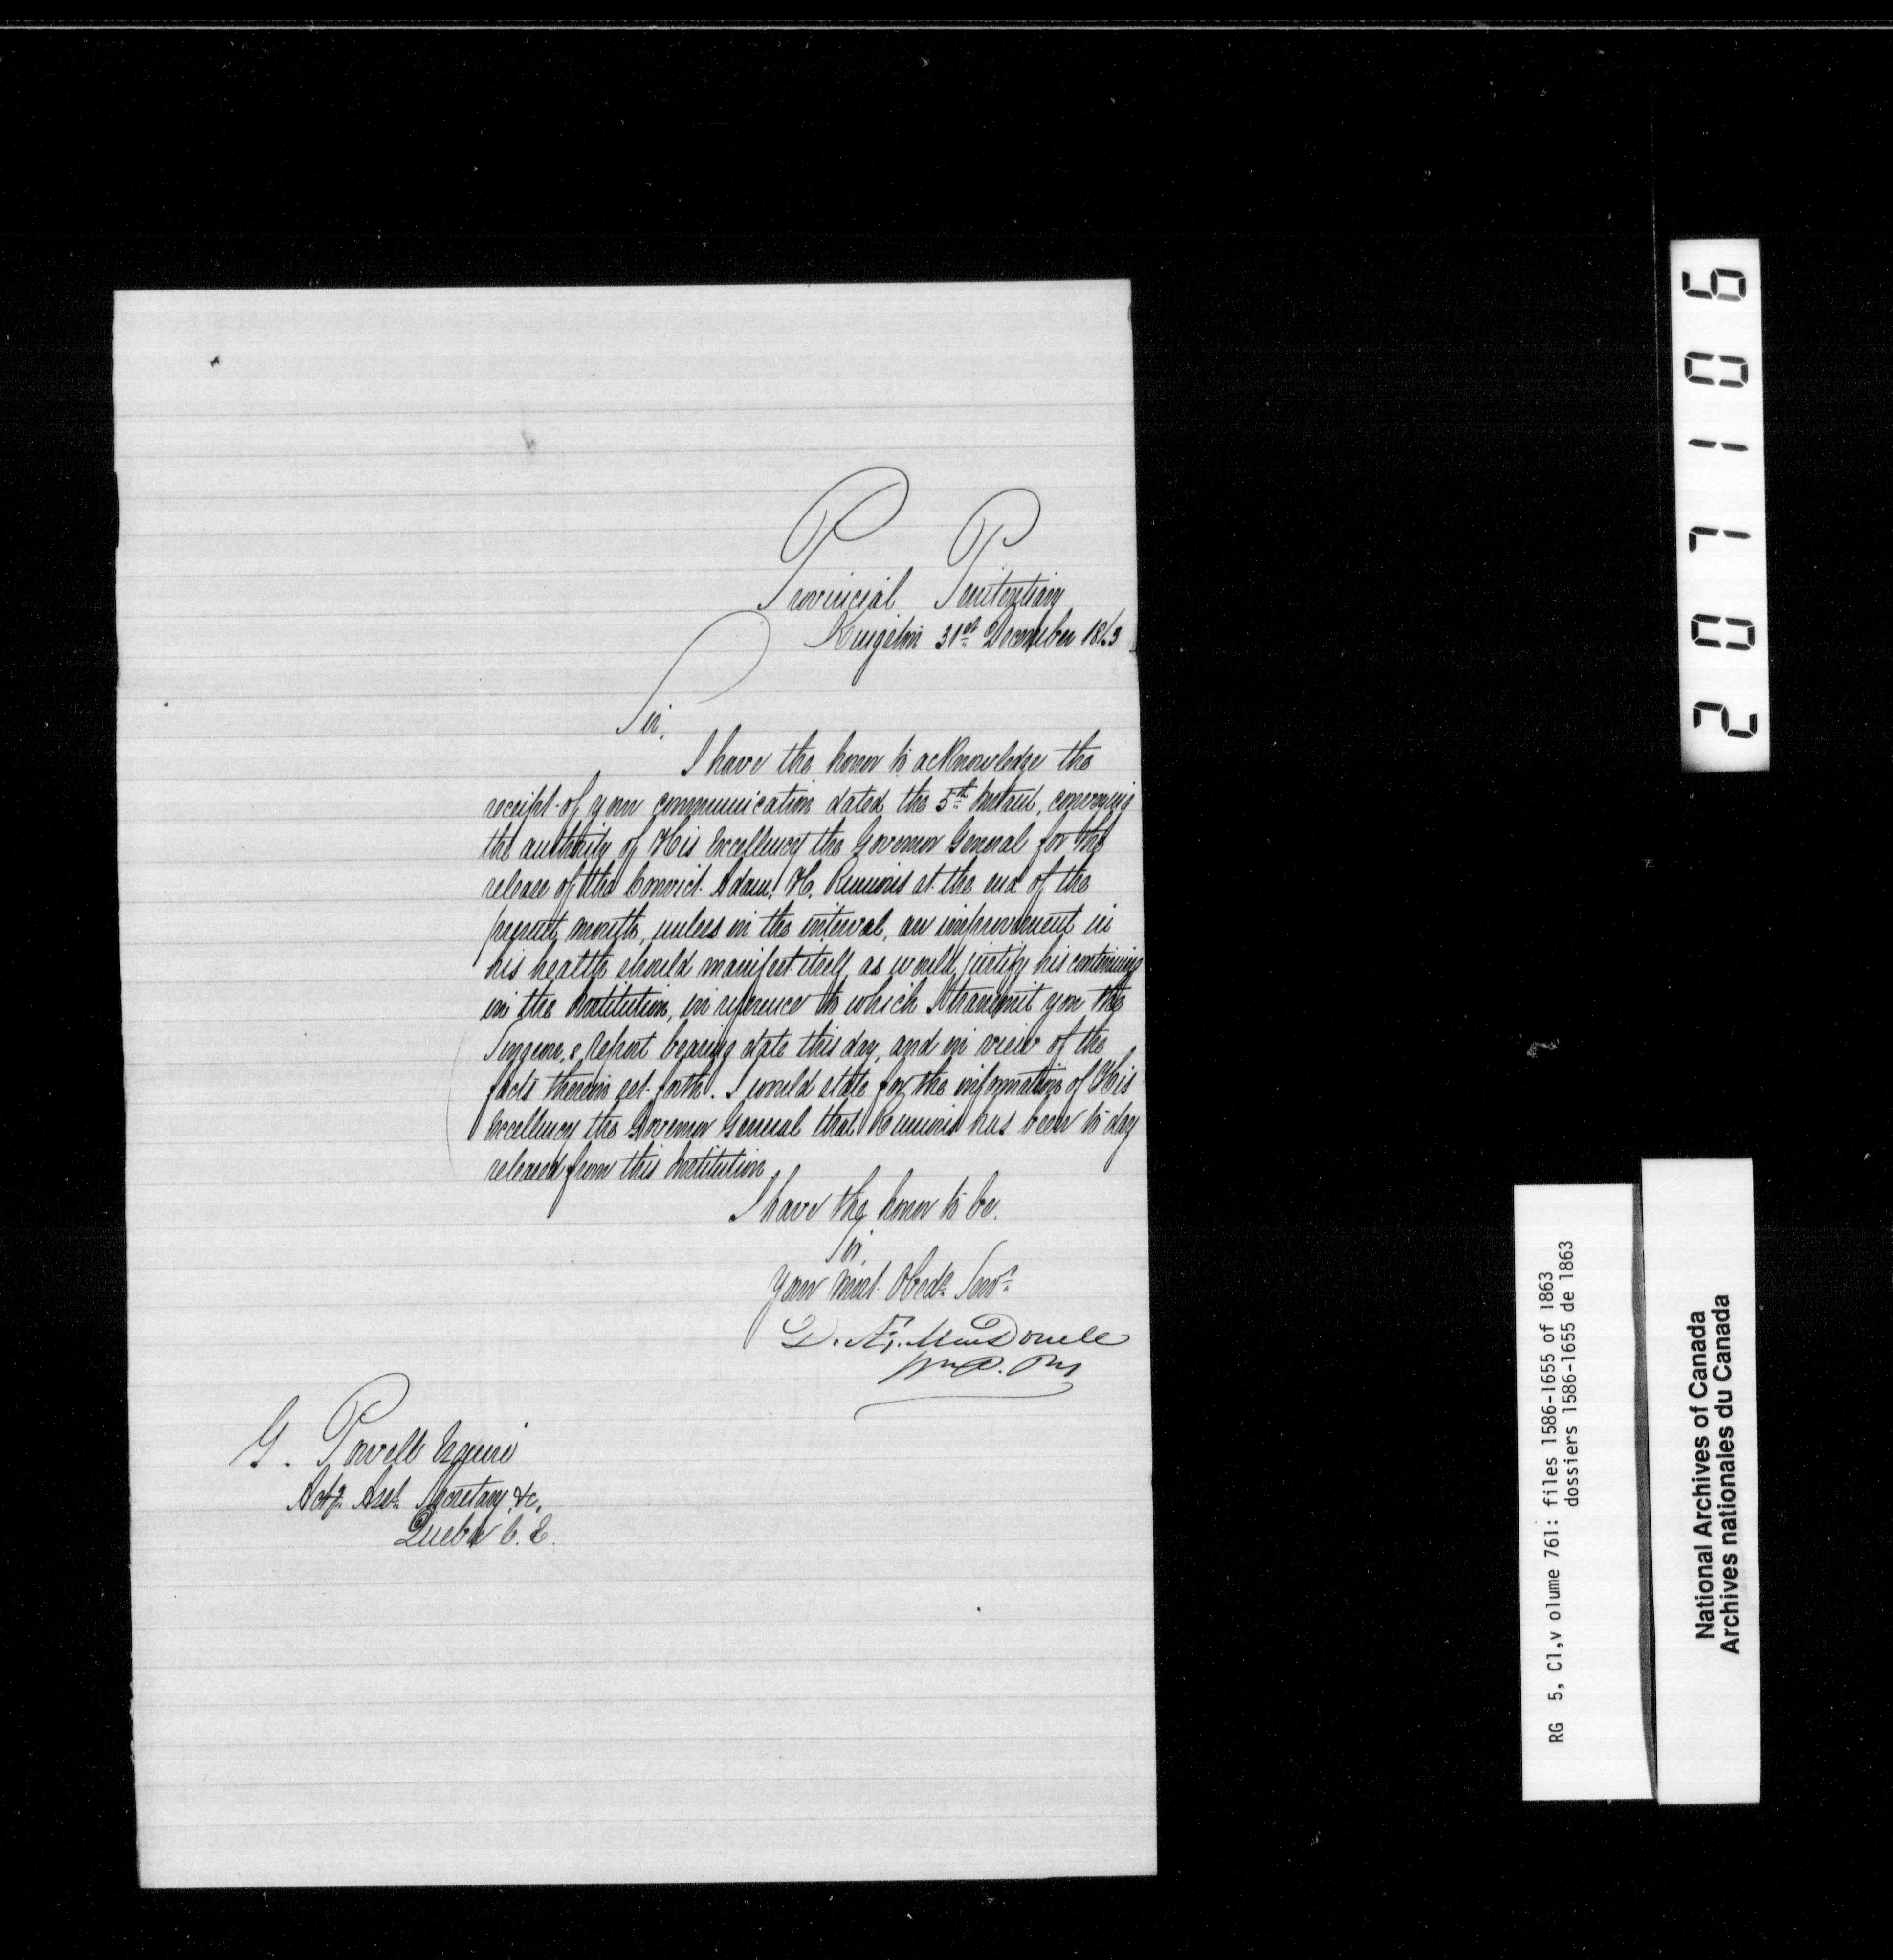 Provincial Penitentiary
Kingston 31st December 1863
Sir,
I have the honor to acknowledge the
receipt of your communication dated the 5th Instant, conveying
the authority of His Excellency the Governor General for the
release of the Convict Adam H. at the end of the
present month, unless in the interval, an improvement in
his health should manifest itself, as would justify his continuing
in the Institution, in reference to which I transmit you the
Surgeon,s Report bearing date this day, and in view of the
facts therein set forth. I would state for the information of His
Excellency the Governor General that has been to day
released from this Institution
I have the honor to be.
Sir,
Your Most Obedt Servt
D. Æ. MacDonell
G. Powell Esquire
Actg Asst Secretary &c.
Quebec C. E.
207106
RG 5, C1,v olume 761: files 1586-1655 of 1863
dossiers 1586-1655 de 1863
National Archives of Canada
Archives nationales du Canada